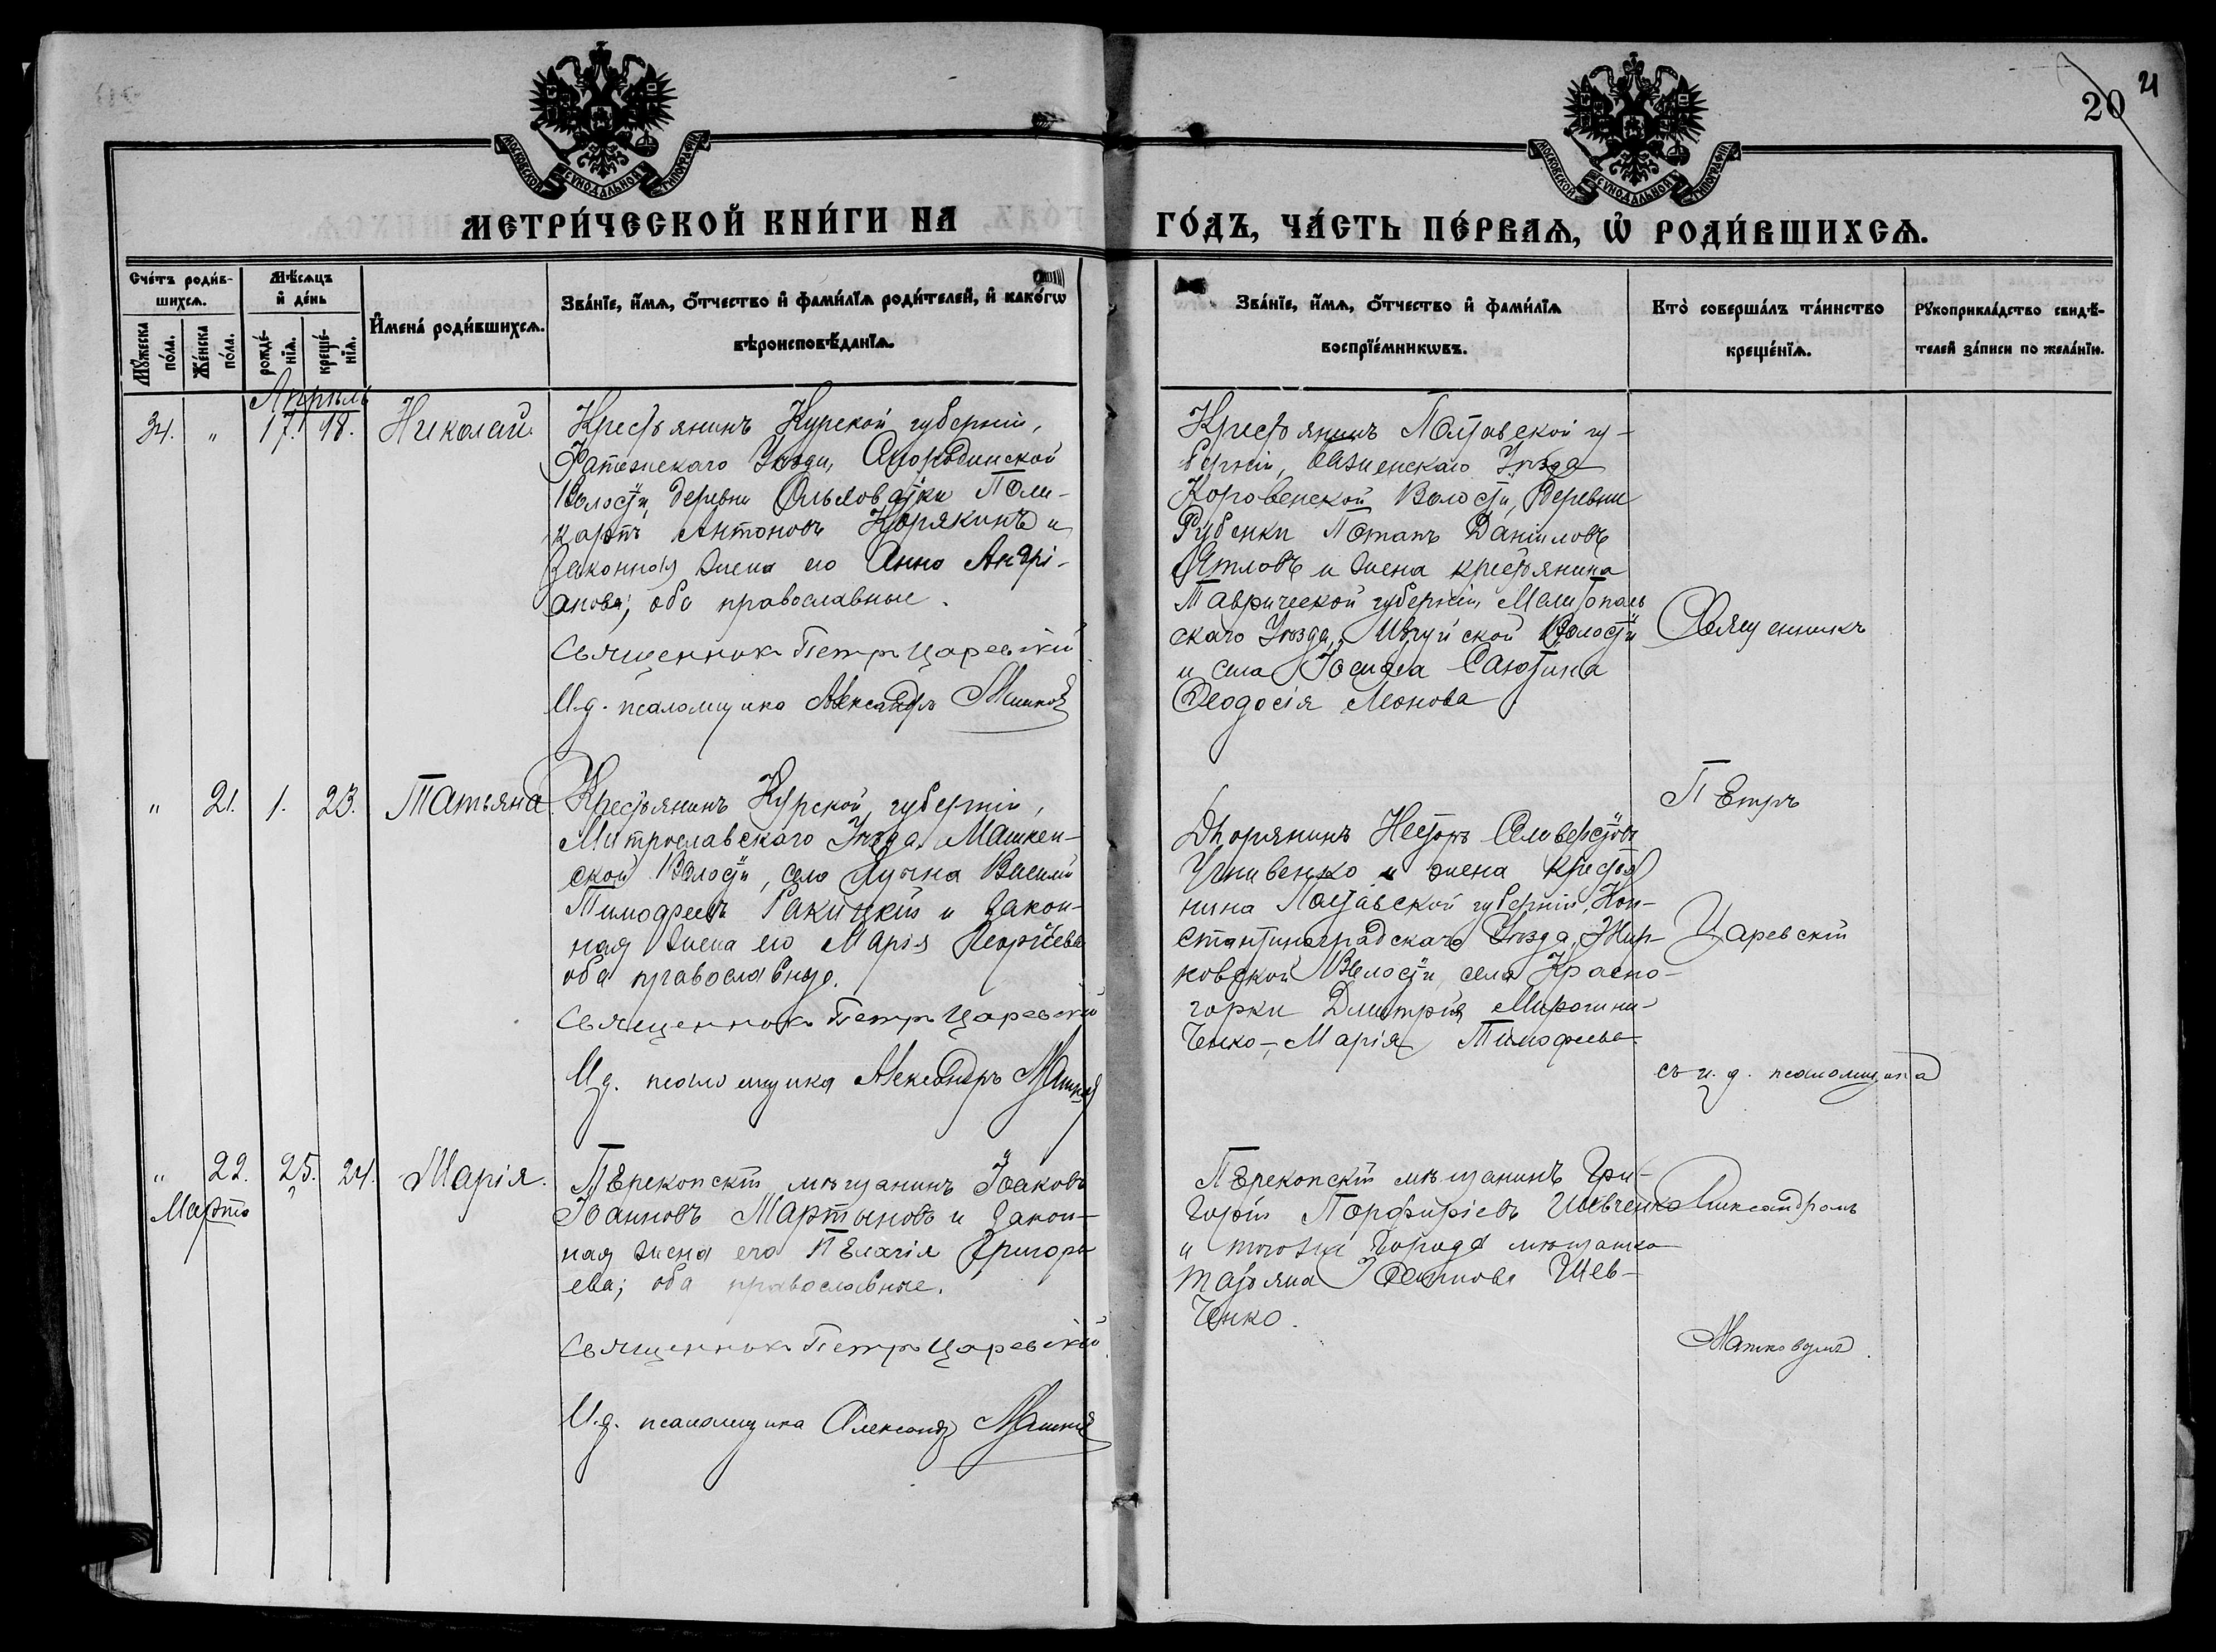 20 21
МОСКОВСКОЙ СѴНОДАЛЬНОЙ ТИПОГРАФІИ
МОСКОВСКОЙ СѴНОДАЛЬНОЙ ТИПОГРАФІИ
МЕТРИ́ЧЕСКОЙ КНИ́ГИ НА
ГО́ДЪ, ЧА́СТЬ ПЕ́РВАѦ, Ѡ҆ РОДИ́ВШИХСѦ.
Сче́тъ роди́в-
шихсѧ.
Мꙋ́жеска по́ла.
Же́нска по́ла.
Мѣ́сѧцъ
и҆ де́нь
рожде́-
нїѧ.
креще́-
нїѧ.
И҆мена̀ роди́вшихсѧ.
Зва́нїе, и҆́мѧ, ѻ҆́тчество и҆ фами́лїѧ роди́телей, и҆ како́гѡ
вѣроисповѣ́данїѧ.
Зва́нїе, и҆́мѧ, ѻ҆́тчество и҆ фами́лїѧ
воспрїе́мникѡвъ.
Кто̀ соверша́лъ та́инство
креще́нїѧ.
Рꙋкоприкла́дство свидѣ́-
телей за́писи по жела́нїю.
Апрѣль
34. " 17. 18. Николай.
Крестьянинъ Курской губерніи,
Фатежскаго Уѣзда, Смородинской
Волости, деревни Ольховатки Поли-
карпъ Антоновъ Корякинъ и
законная жена его Анна Андрі-
анова; оба православные.
Священникъ Петръ Царевскій
И.д. псаломщика Александръ Машков
Крестьянинъ Полтавской гу-
берніи, Уѣзда
Коровенской Волости, деревни
Рубенки Потапъ Даніиловъ
Ятловъ и жена крестьянина
Таврической губерніи, Мелитополь
скаго Уѣзда, Волости
и села Іосифа Саютина
Феодосія Леонова
Священникъ
" 21. 1. 23. Татьяна.
Крестьянинъ Курской губерніи,
Митрославскаго Уѣзда, Машкен-
ской Волости, села Лучна Василій
Тимофеевъ Ракицкій и закон-
ная жена его Марія Георгіева
оба православные.
Священникъ Петръ Царевскій
И.д. псаломщика Александръ Машков
Дворянинъ Несторъ Селиверстовъ
и жена крестья
нина Полтавской губерніи, Кон-
стантиноградскаго Уѣзда,
ковской Волости, села Красно-
горки Димитрія Мирошни-
ченко, Марія Тимофеева
Петръ
Царевскій
съ и. д. псаломщика
" 22. 25. 24. Марія.
Марта
Перекопскій мѣщанинъ Іаковъ
Іоанновъ Мартыновъ и закон-
ная жена его Пелагія Григорь
ева; оба православные.
Священникъ Петръ Царевскій
И.д. псаломщика Александръ Машков
Перекопскій мѣщанинъ Гри-
горій Порфиріевъ Шевченко
и того же города мѣщанка
Татьяна Іоаннова Шев-
ченко.
Александромъ
Машковымъ.